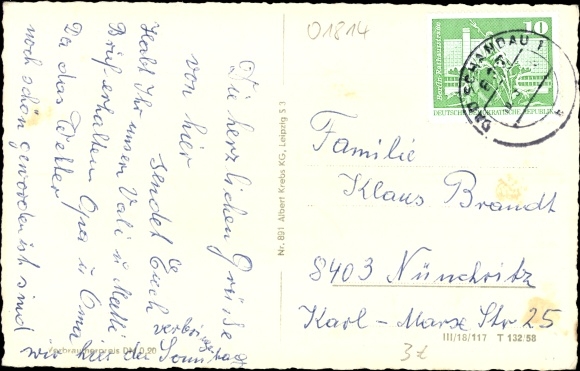 Die herzlichen Grüße
von hier
sendet Euch
Habt Ihr unsern
Brief erhalten Opa u Oma
Da das Wetter
noch schön geworden ist sind
wir hier
Sonntag
01814
10
Berlin-Rathausstraße
DEUTSCHE DEMOKRATISCHE REPUBLIK
BAD SCHANDAU 1
Nr. 891 Albert Krebs KG, Leipzig S 3
Familie
Klaus Brandt
8403 Nünchritz
Karl-Marx Str 25
III/18/117 T 132/58
Verbraucherpreis DM 0,20